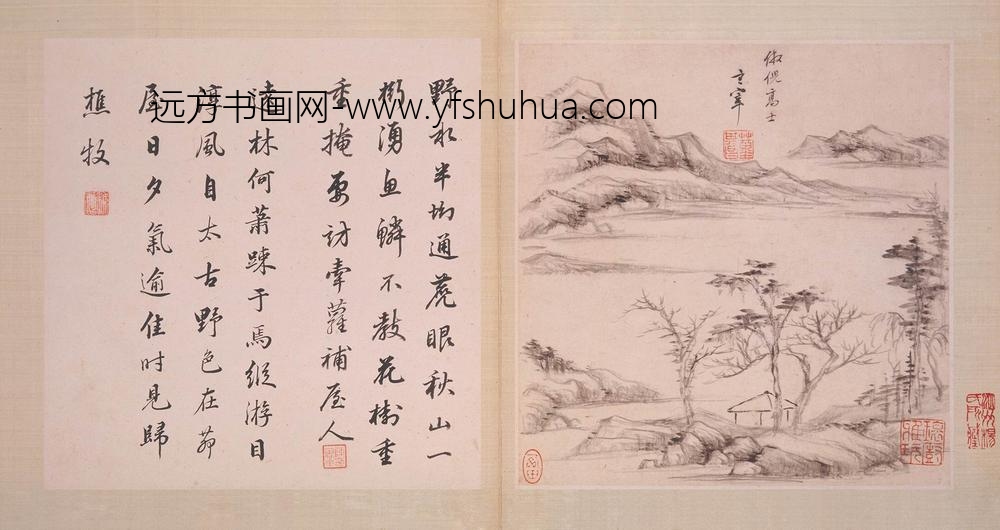 野水半坳通蘸眼秋山一
擲湧魚鱗不教花樹重
重掩要訪牽蘿補屋人
遠林何蕭踈于焉縱游目
淳風自太古野色在茆
屋日夕氣逾佳时見歸
樵牧
倣倪高士
玄宰
远方书画网-www.yfshuhua.com